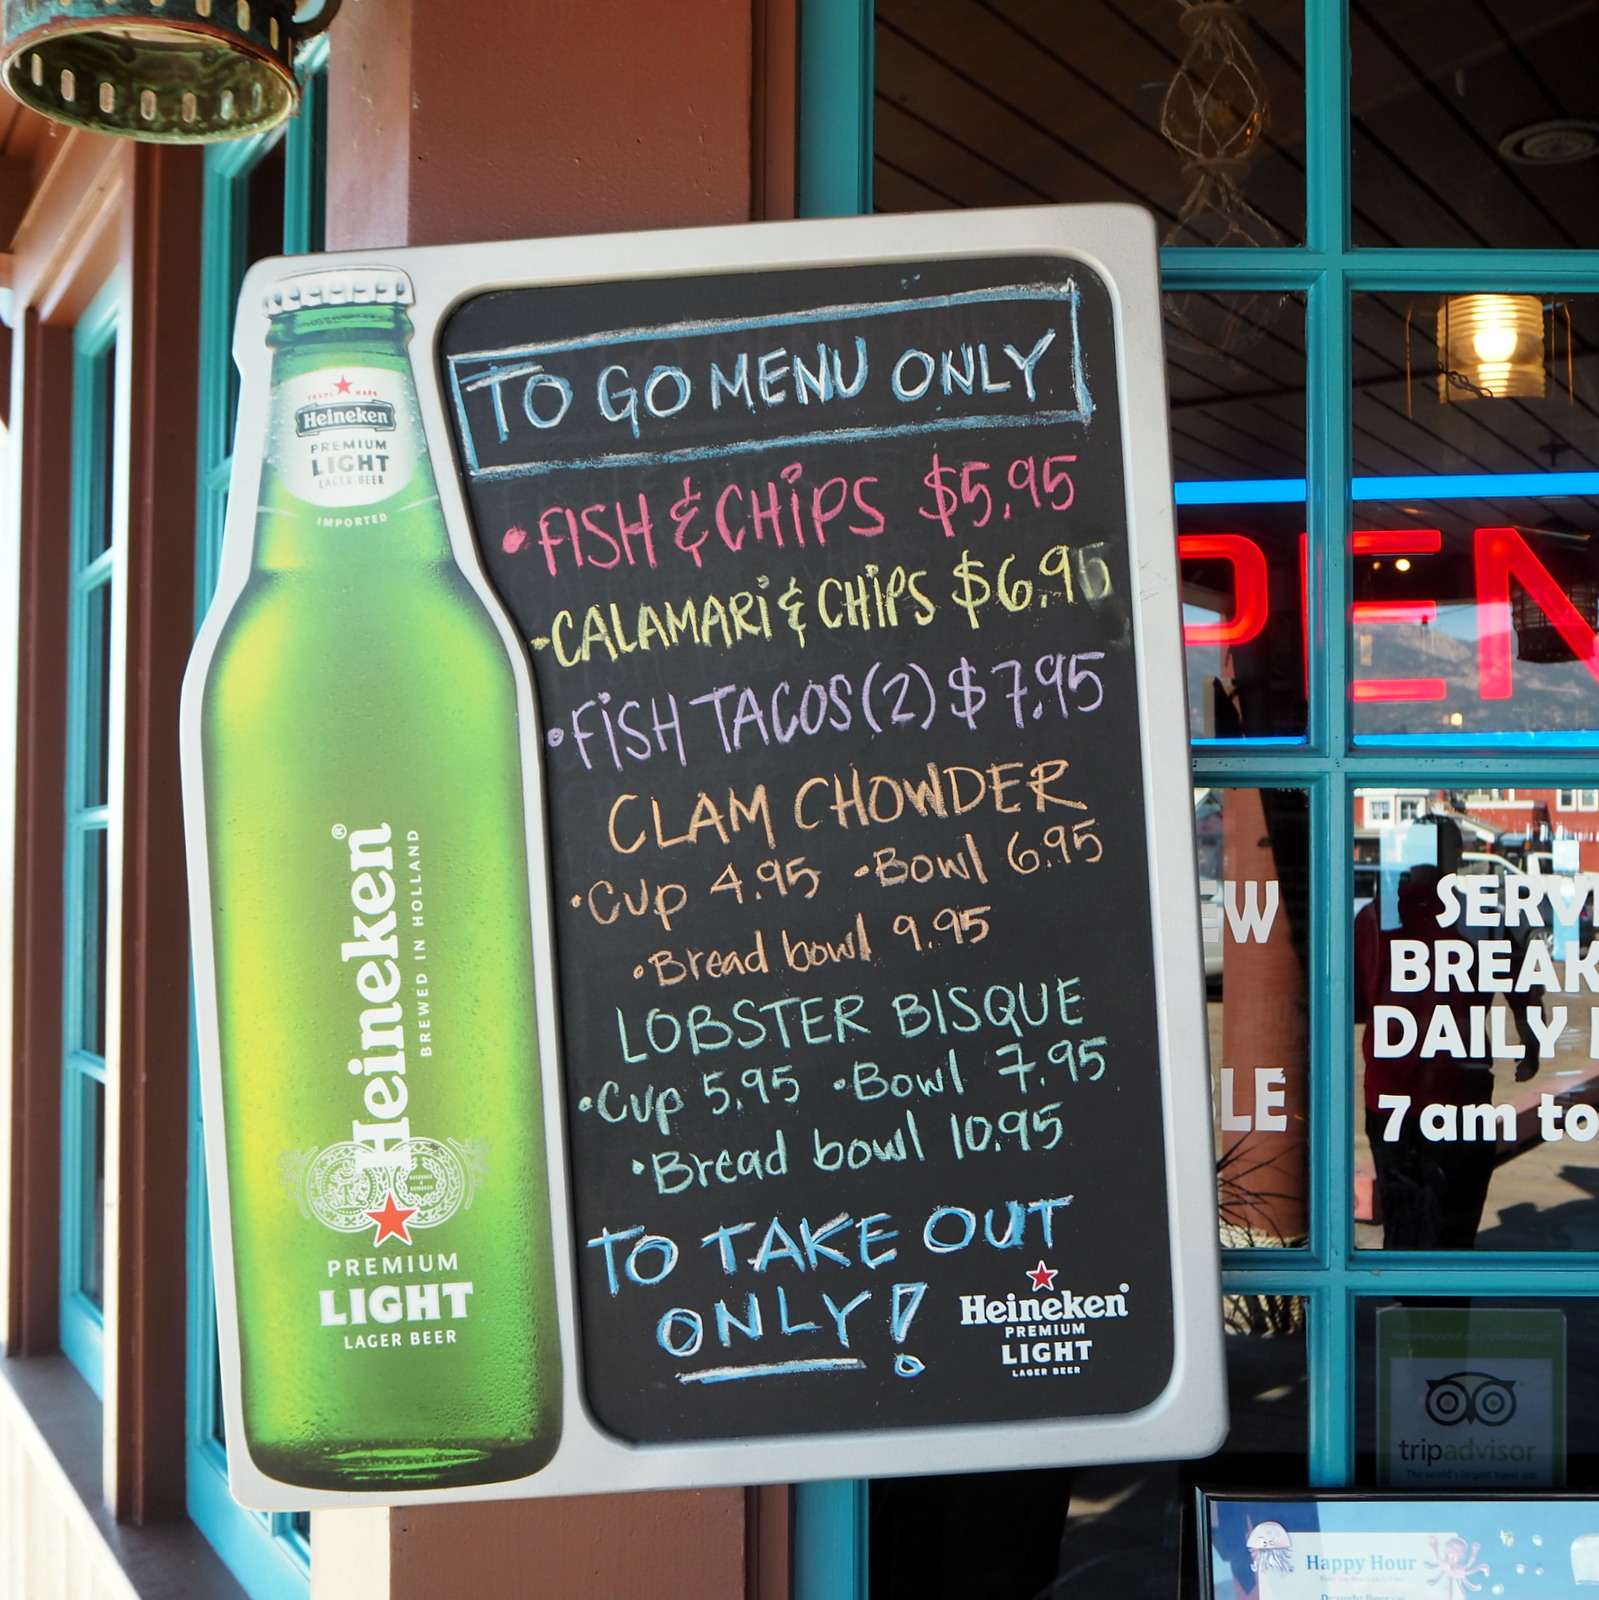 TO GO MENU ONLY
• FISH & CHIPS $5.95
- CALAMARI & CHIPS $6.95
• FISH TACOS (2) $7.95
CLAM CHOWDER
• Cup 4.95 • Bowl 6.95
• Bread bowl 9.95
LOBSTER BISQUE
• Cup 5.95 • Bowl 7.95
• Bread bowl 10.95
TO TAKE OUT
ONLY!
Heineken®
PREMIUM
LIGHT
LAGER BEER
TRADE MARK
Heineken
PREMIUM
LIGHT
LAGER BEER
IMPORTED
Heineken®
BREWED IN HOLLAND
PREMIUM
LIGHT
LAGER BEER
PEN
EW
SERV
BREAK
DAILY
LE
7am to
tripadvisor
The world's largest travel site
Happy Hour